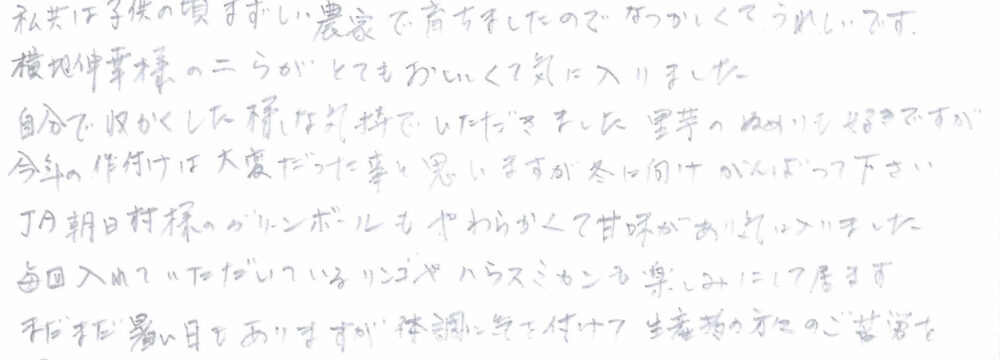 私共は子供の頃まずしい農家で育ちましたのでなつかしくてうれしいです.
横地伸幸様のニラがとてもおいしくて気に入りました
自分で収かくした様な気持でいただきました 里芋のぬめりも好きですが
今年の作付けは大変だった事と思いますが冬に向けがんばって下さい
JA朝日村様のグリーンボールもやわらかくて甘味があり気に入りました
毎回入れていただいているリンゴやハウスミカンも楽しみにして居ます
まだまだ暑い日もありますが体調に気を付けて生産者の方々のご苦労を